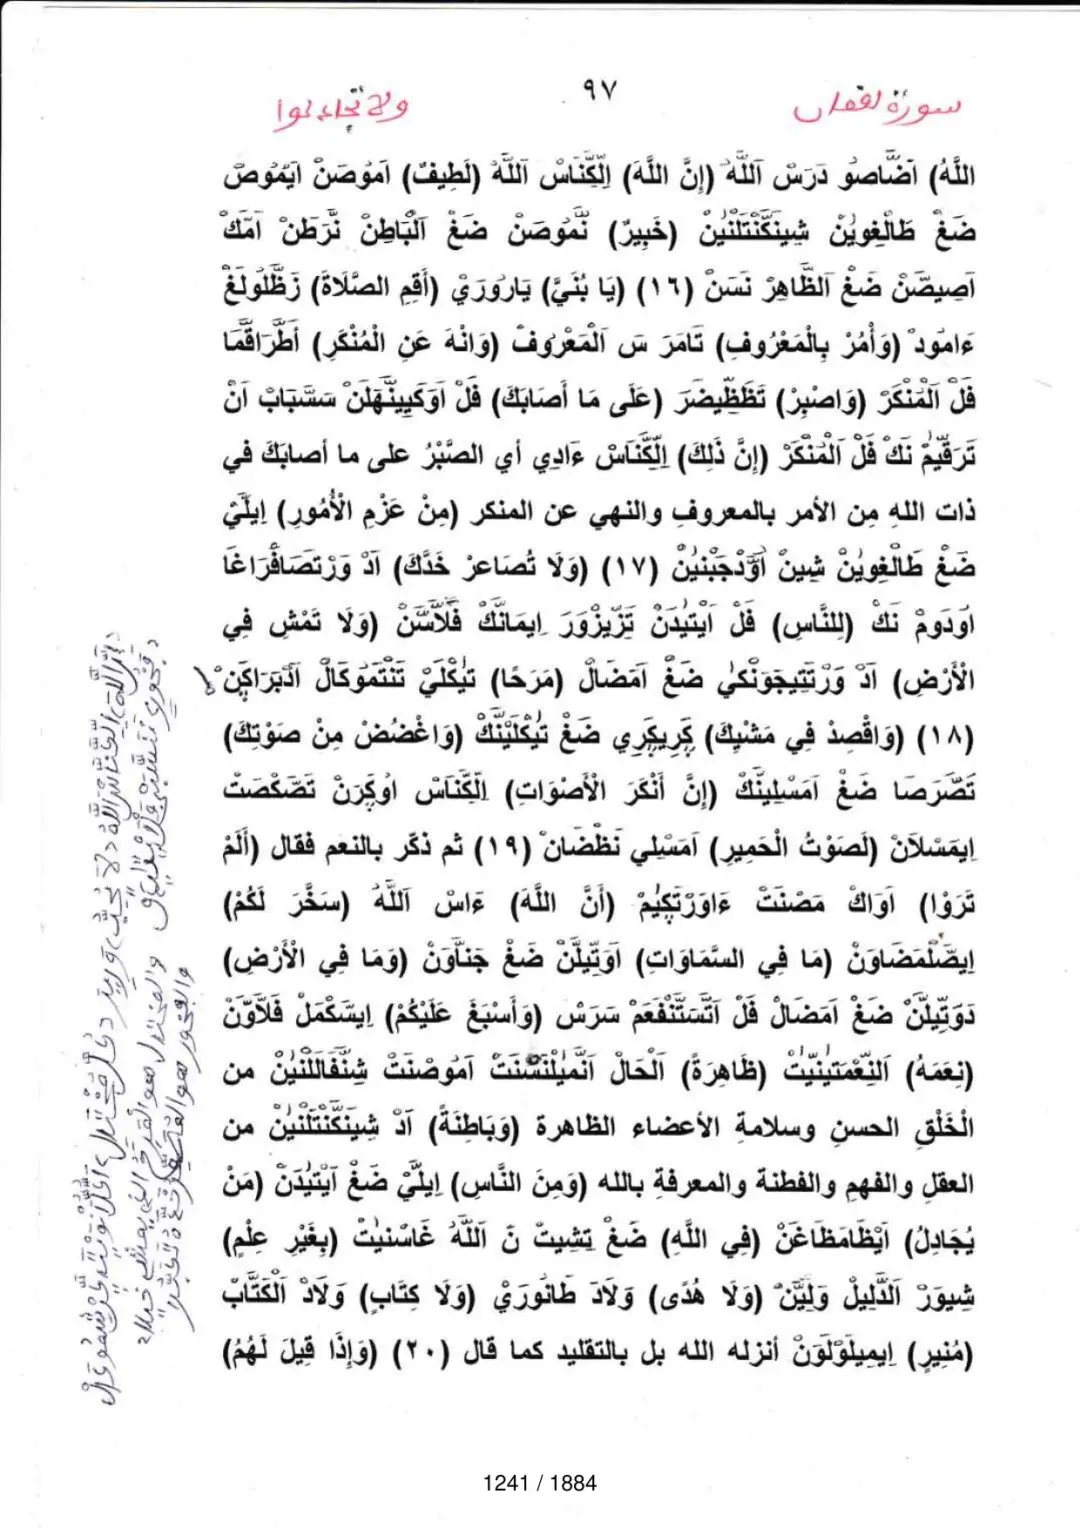 سورة لقمان ٩٧ ولا تجادلوا
اللَّهُ) اَضَّاصوُ دَرَسْ اَللَّهْ (إِنَّ اللَّهَ) اِلِّكْنَاسْ اَللَّهْ (لَطِيفٌ) اَمُوصَنْ اَيْمُوصْ
ضَغْ طَالْغِويُنْ شِينَكَّنْتَلْنَيِنْ (خَبِيرٌ) نَّمُوصَنْ ضَغْ اَلْبَاطِنْ نَّرَطَنْ اَمَّكْ
اَصِيصَّنْ ضَغْ اَلظَّاهِرْ نَسَنْ (١٦) (يَا بُنَيَّ) يَارُورَيْ (أَقِمِ الصَّلَاةَ) زَظَّلُولَغْ
ءَامُودْ (وَأْمُرْ بِالْمَعْرُوفِ) تَامَرَ سَ اَلْمَعْرُوفْ (وَانْهَ عَنِ الْمُنْكَرِ) أَطَّرَاقَّمَا
فَلْ اَلْمَنْكَرْ (وَاصْبِرْ) تَظَظِّيضَرَ (عَلَى مَا أَصَابَكَ) فَلْ اَوَكَيِينَّهَلَنْ سَسَّبَابْ اَنْ
تَرَقِّيمُ نَكْ فَلْ اَلْمُنْكَرْ (إِنَّ ذَلِكَ) اِلِّكَّنَاسْ ءَادِي أي الصَّبْرُ على ما أصابكَ في
ذات اللهِ مِن الأمر بالمعروفِ والنهي عن المنكر (مِنْ عَزْمِ الْأُمُورِ) اِيلَيْ
ضَغْ طَالْغِويِنْ شِينْ اَوَّدْجَبْنَيِنْ (١٧) (وَلَا تُصَاعِرْ خَدَّكَ) اَدْ وَرْتَصَافَّرَاغَا
اُودَومْ نَكْ (لِلنَّاسِ) فَلْ اَيْتِيدَنْ تَزِّيزْوَرَ اِيمَانَّكْ فَلَّاسَّنْ (وَلَا تَمْشِ فِي
الْأَرْضِ) اَدْ وَرْتَتِيجَوَنْكَيْ ضَغْ اَمَضَالْ (مَرَحًا) تَيْكْلَيْ تَنْتَمُوكَالْ اَدْبَرَاكَنْ
(١٨) (وَاقْصِدْ فِي مَشْيِكَ) كَرِيكَرِي ضَغْ تَيْكَلَيْنَّكْ (وَاغْضُضْ مِنْ صَوْتِكَ)
تَصَّرَصَا ضَغْ اَمَسْلِينَّكْ (إِنَّ أَنْكَرَ الْأَصْوَاتِ) اِلِّكْنَاسْ اُوكَرَنْ تَصَّكْصَتْ
اِيمَسْلَانْ (لَصَوْتُ الْحَمِيرِ) اَمَسْلِي نَظْضَانْ (١٩) ثم ذكّر بالنعم فقال (أَلَمْ
تَرَوْا) اَوَاكْ مَصْنَتْ ءَاوَرْتَكِيُمْ (أَنَّ اللَّهَ) ءَاسْ اَللَّهْ (سَخَّرَ لَكُمْ)
اِيصَّلْمَضَاوَنْ (مَا فِي السَّمَاوَاتِ) اَوَتِّيلَّنْ ضَغْ جَنَّاوَنْ (وَمَا فِي الْأَرْضِ)
دَوَتِّيلَّنْ ضَغْ اَمَضَالْ فَلْ اَتَّسْتَنْفَعَمْ سَرَسْ (وَأَسْبَغَ عَلَيْكُمْ) اِيسَكْمَلْ فَلَّاوَّنْ
(نِعَمَهُ) اَلنِّعْمَتِينَيِتْ (ظَاهِرَةً) اَلْحَالْ اَنَّمِيْلَنْشَنَتْ اَمُوصْنَتْ شِنَّفَالَلْنَيِنْ من
الْخَلْقِ الحسنِ وسلامةِ الأعضاء الظاهرة (وَبَاطِنَةً) اَدْ شِينَكَّنْتَلْنَيِنْ من
العقلِ والفهمِ والفطنة والمعرفةِ بالله (وَمِنَ النَّاسِ) اِيلَيْ ضَغْ اَيْتِيدَنْ (مَنْ
يُجَادِلُ) اَيْظَامَظَاغَنْ (فِي اللَّهِ) ضَغْ تِشِيتْ نَ اَللَّهْ غَاسْنَيِتْ (بِغَيْرِ عِلْمٍ)
شِيوَرْ اَلدَّلِيلْ وَلِيَّنْ (وَلَا هُدًى) وَلَادَ طَانُورَيْ (وَلَا كِتَابٍ) وَلَادْ اَلْكَتَّابْ
(مُنِيرٍ) اِيمِيلَوْلَوَنْ أنزله الله بل بالتقليد كما قال (٢٠) (وَإِذَا قِيلَ لَهُمُ)
1241 / 1884